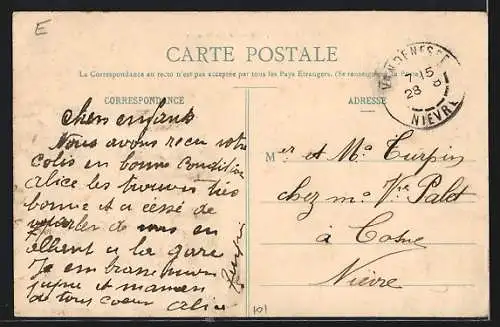 E
CARTE POSTALE
La Correspondance au recto n'est pas acceptée par tous les Pays Etrangers. (Se renseigner à la Poste)
CORRESPONDANCE
ADRESSE
VANDENESSE
7-15
28
NIEVRE
chers enfants
Nous avons recu votre
colis en bonne condition
alice les trouvais très
bonne et a cessé de
parler de vous en
allent a la gare
Je embrasse mon
et maman
de tous coeur alice
Turpin
Mer et Ma Turpin
chez Ma Vve Palet
à Cosne
Nièvre
101